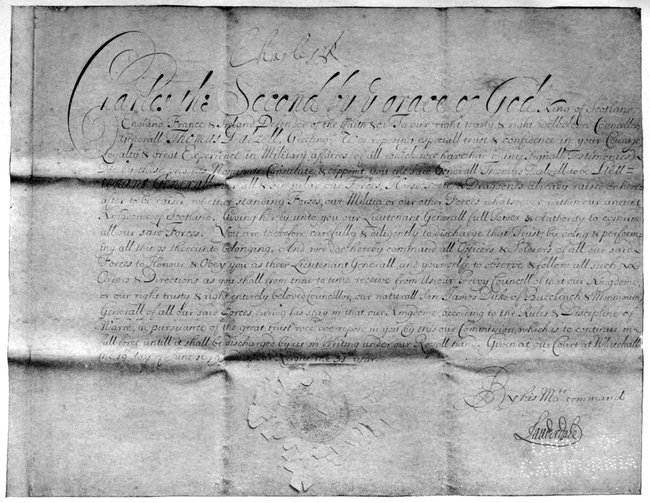 Charles R
Charles the Second by ye grace of God King of Scotland
England France & Ireland Defender of the Faith &c To our right trusty & right welbeloved Councellor
Generall Thomas Dalzell Greeting Wee reposing especiall trust & confidence in your Courage
Loyalty & great Experience in Military affairs, of all which wee have had many Signall Testimonies,
Do by these presents Constitute & appoint you the said Generall Thomas Dalzell to be Lieu-
tenant Generall all & singular our Forces, Horse, Foot & Dragoons already raised or here-
after to be raised, whether standing Forces, our Militia or our other Forces whatsoever within our ancient
Kingdome of Scotland. Giving hereby unto you our Lieutenant Generall full Power & Authority to command
all our said Forces. You are therefore carefully & diligently to discharge that Trust, by doing & perform-
ing all things thereunto belonging. And wee doe hereby command all Officers & Soldiers of all our said
Forces to Honour & Obey you as their Lieutenant Generall, and yourselfe to observe & follow all such
Orders & Directions as you shall from time to time receive from Us, our Privy Councill of that our Kingdome,
or our right trusty & right entirely beloved Councellor, our naturall Son James Duke of Buccleuch & Monmouth,
Generall of all our said Forces during his stay in that our Kingdome according to the Rules & Discipline of
Warre, in pursuance of the great trust wee repose in you by this our Commission, which is to continue in
full force untill it shall be discharged by us in Writing under our Royall hand. Given at our Court at Whitehall
the 19 day of Reigne the 31 year
By his Maties command
Lauderdale
CALIFORNIA